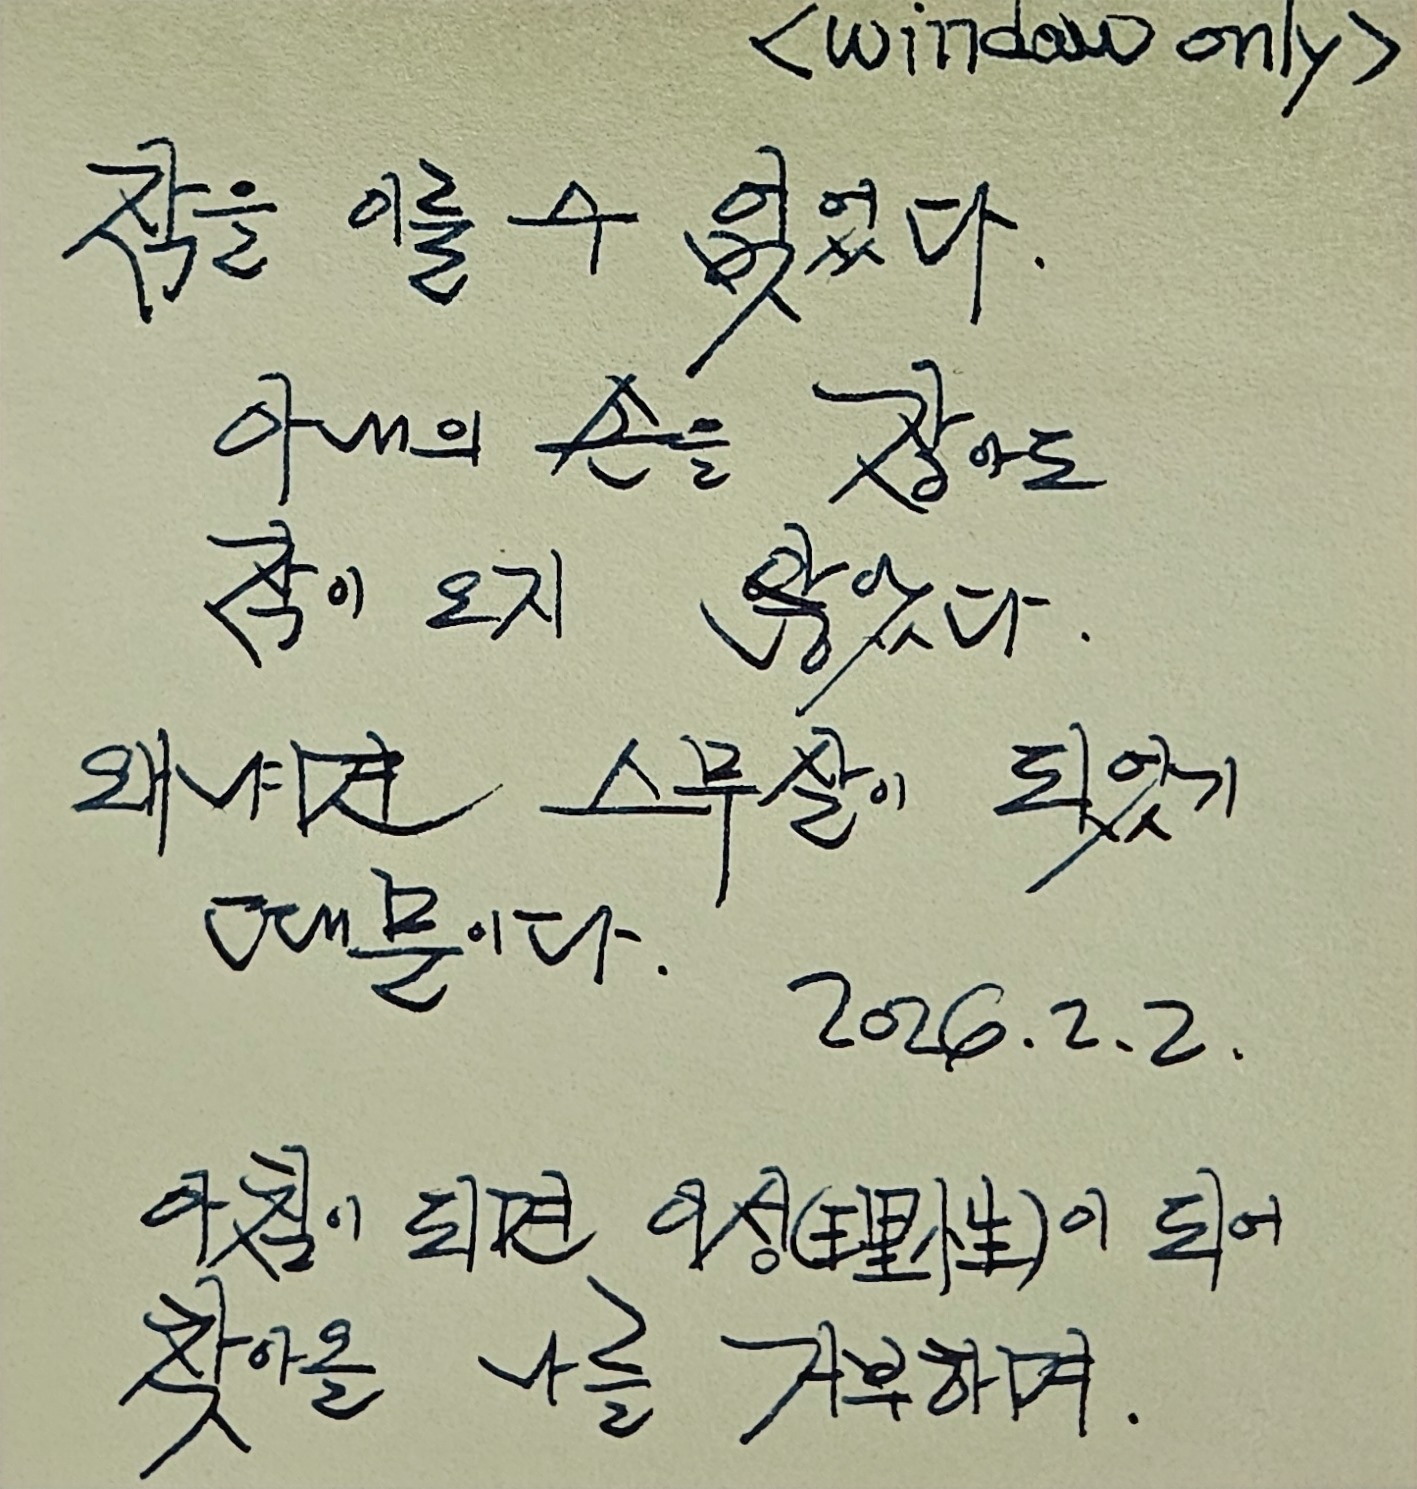 <window only>
잠을 이룰 수 없었다.
아내의 손을 잡아도
잠이 오지 않았다.
왜냐면 스무살이 되었기
때문이다.
2026.2.2.
아침이 되면 이성(理性)이 되어
찾아올 나를 거부하며.